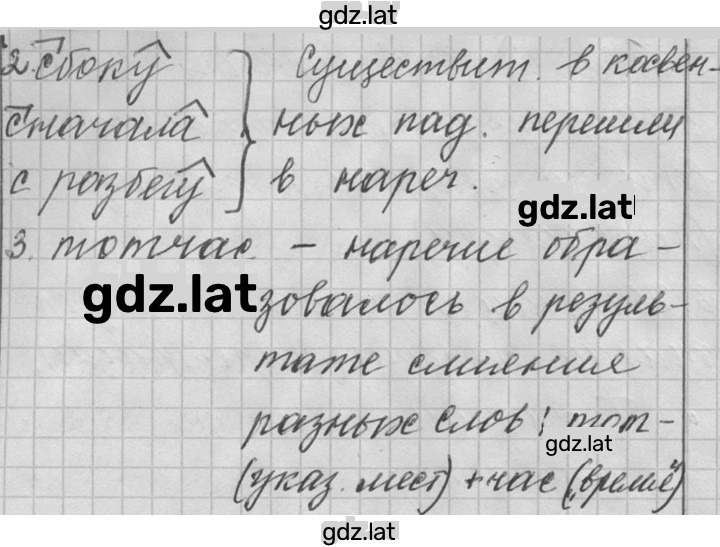 gdz.lat
2. сбоку } Существит. в косвен-
сначала ных пад. перешли
с разбегу в нареч.
gdz.lat
3. тотчас – наречие обра-
gdz.lat зовалось в резуль-
тате слияния
разных слов: тот-
gdz.lat
(указ. мест) + час („время")
gdz.lat